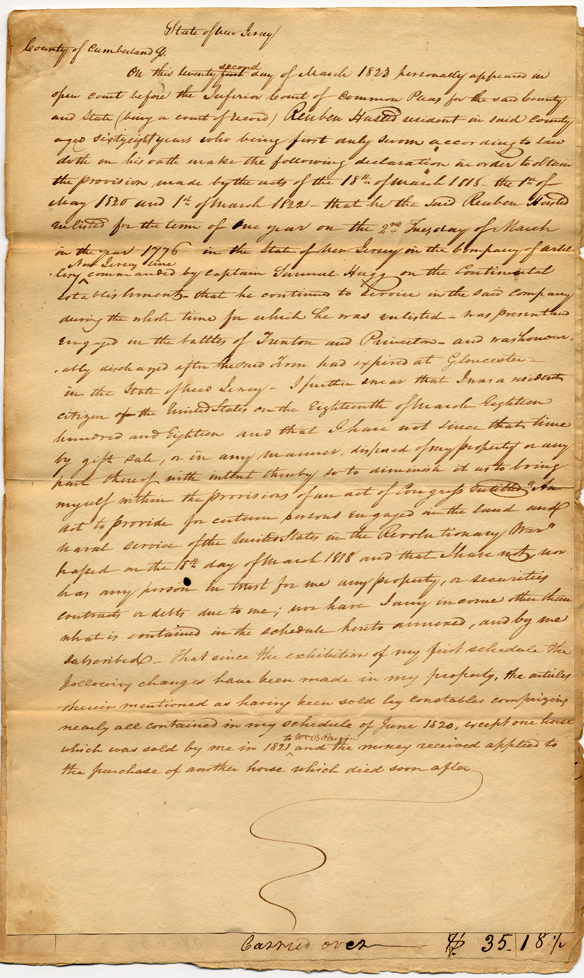 State of New Jersey
County of Cumberland Ss.
On this twenty second first day of March 1823 personally appeared in
open court before the Inferior Court of Common Pleas for the said County
and State (being a court of record) Reuben Husted resident in said County
aged sixty eight years who being first duly sworn according to law
doth on his oath make the following declaration in order to obtain
the provision made by the acts of the 18th of March 1818 the 1st of
May 1820 and 1st of March 1822 – that he the said Reuben Husted
enlisted for the term of one year on the 2nd Tuesday of March
in the year 1776 in the State of New Jersey in the Company of artil
New Jersey line
lery commanded by captain Samuel Hugg on the Continental
Establishment – that he continued to serve in the said Company
during the whole time for which he was enlisted – was present and
engaged in the battles of Trenton and Princeton – and was honour
ably discharged after the said term had expired at Gloucester –
in the State of New Jersey – I further swear that I was a resident
citizen of the United States on the Eighteenth of March Eighteen
hundred and Eighteen and that I have not since that time
by gift sale, or in any manner, disposed of my property or any
part thereof with intent thereby so to diminish it as to bring
myself within the provisions of an act of Congress entitled "An
act to provide for certain persons engaged in the land and
naval service of the United States in the Revolutionary War"
passed on the day of March 1818 and that I have not, nor
has any person in trust for me any property, or securities
contracts or debts due to me; nor have I any income other than
what is contained in the schedule hereto annexed, and by me
subscribed – that since the exhibition of my first schedule the
following changes have been made in my property, the articles
therein mentioned as having been sold by constables comprizing
nearly all contained in my schedule of June 1820, except one horse
to Wm
which was sold by me in 1821 and the money received applied to
the purchase of another horse which died soon after
Carried over $ 35.18 1/2